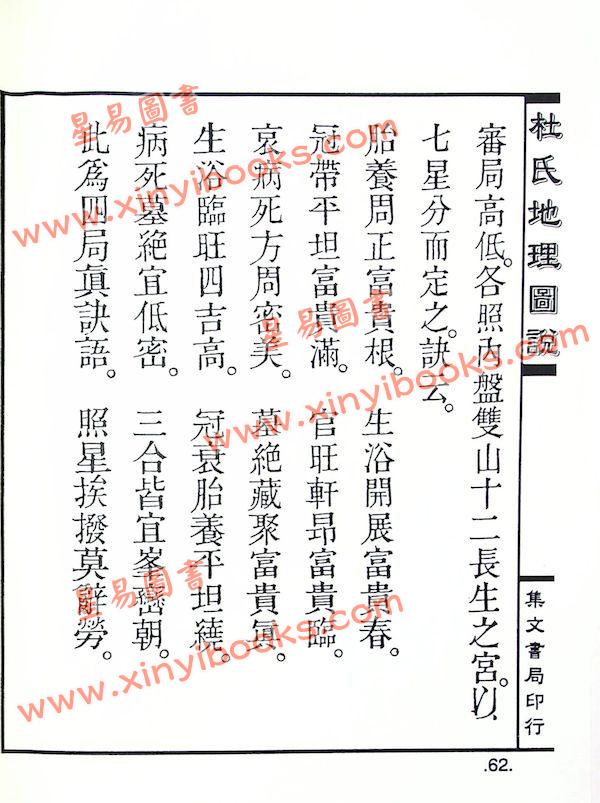 杜氏地理圖說
集文書局印行
審局高低。各照內盤雙山十二長生之宮。以
七星分而定之。訣云。
胎養周正富貴根。生浴開展富貴春。
冠帶平坦富貴滿。官旺軒昂富貴臨。
衰病死方問密美。墓絕藏聚富貴眞。
生浴臨旺四吉高。冠衰胎養平坦繞。
病死墓絕宜低密。三合皆宜峯巒朝。
此爲四局眞訣語。照星挨撥莫辭勞。
.62.
星易圖書
www.xinyibooks.com
星易圖書
www.xinyibooks.com
星易圖書
www.xinyibooks.com